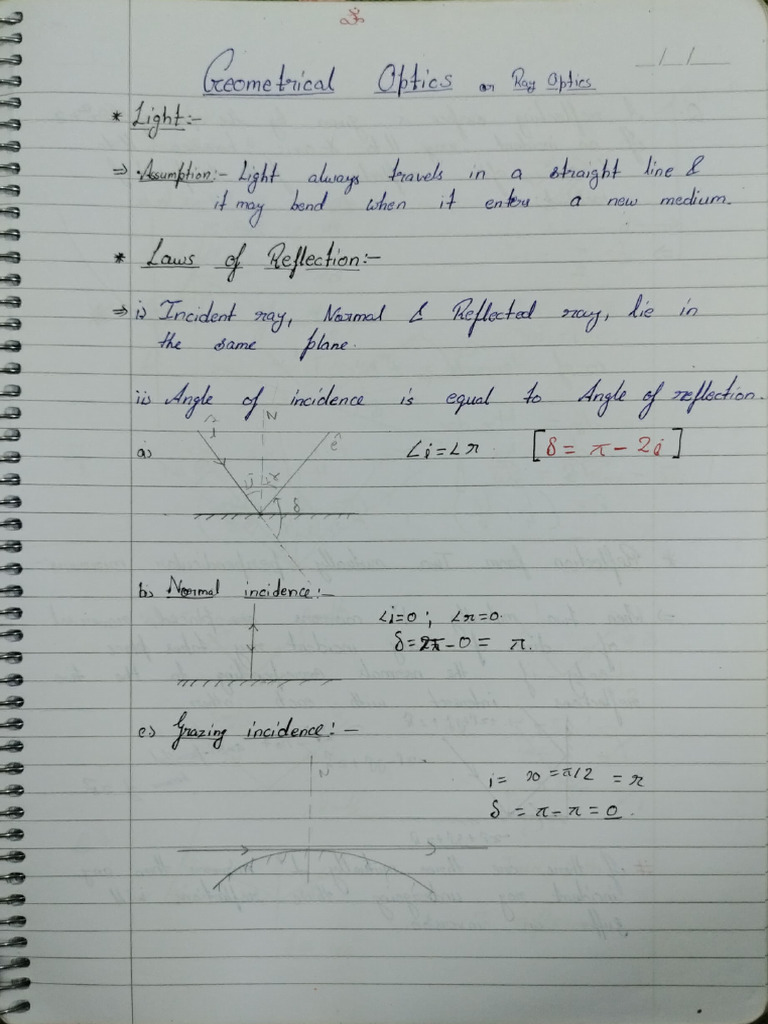 Geometrical Optics or Ray Optics
* Light:-
⇒ Assumption:- Light always travels in a straight line &
it may bend when it enters a new medium.
* Laws of Reflection:-
⇒ i) Incident ray, Normal & Reflected ray, lie in
the same plane.
ii) Angle of incidence is equal to Angle of reflection.
a) N ∠i=∠r [δ = π - 2i]
i r δ
b) Normal incidence:-
∠i=0; ∠r=0
δ=2π-0 = π.
c) Grazing incidence:-
N
i = 90 = π/2 = r
δ = π-π = 0.